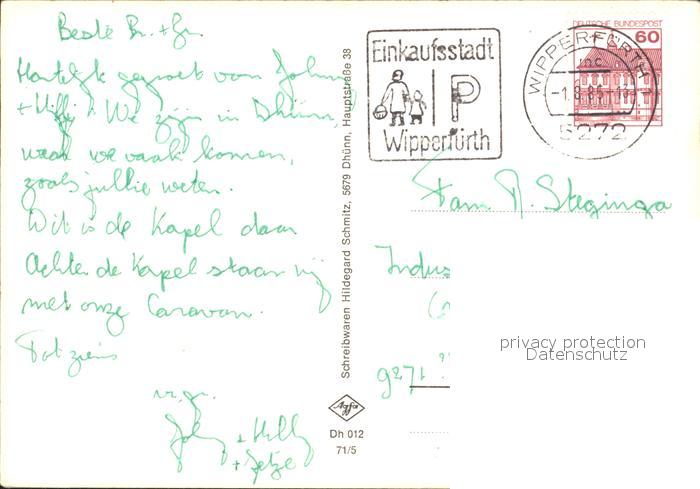 Beste Br. + Zr.
Hartelijk gegroet van Johnny
+ Hilly. We zijn in Dhünn,
waar we vaak komen,
zoals jullie weten.
Dit is de Kapel daar
Achter de Kapel staan wij
met onze Caravan.
Tot ziens
vr. gr.
Johnny + Hilly
+ Jetze
Schreibwaren Hildegard Schmitz, 5679 Dhünn, Hauptstraße 38
Agfa
Dh 012
71/5
Einkaufsstadt
P
Wipperfürth
DEUTSCHE BUNDESPOST
60
WIPPERFÜRTH
5272
Fam R. Steginga
Indus
9271
privacy protection
Datenschutz